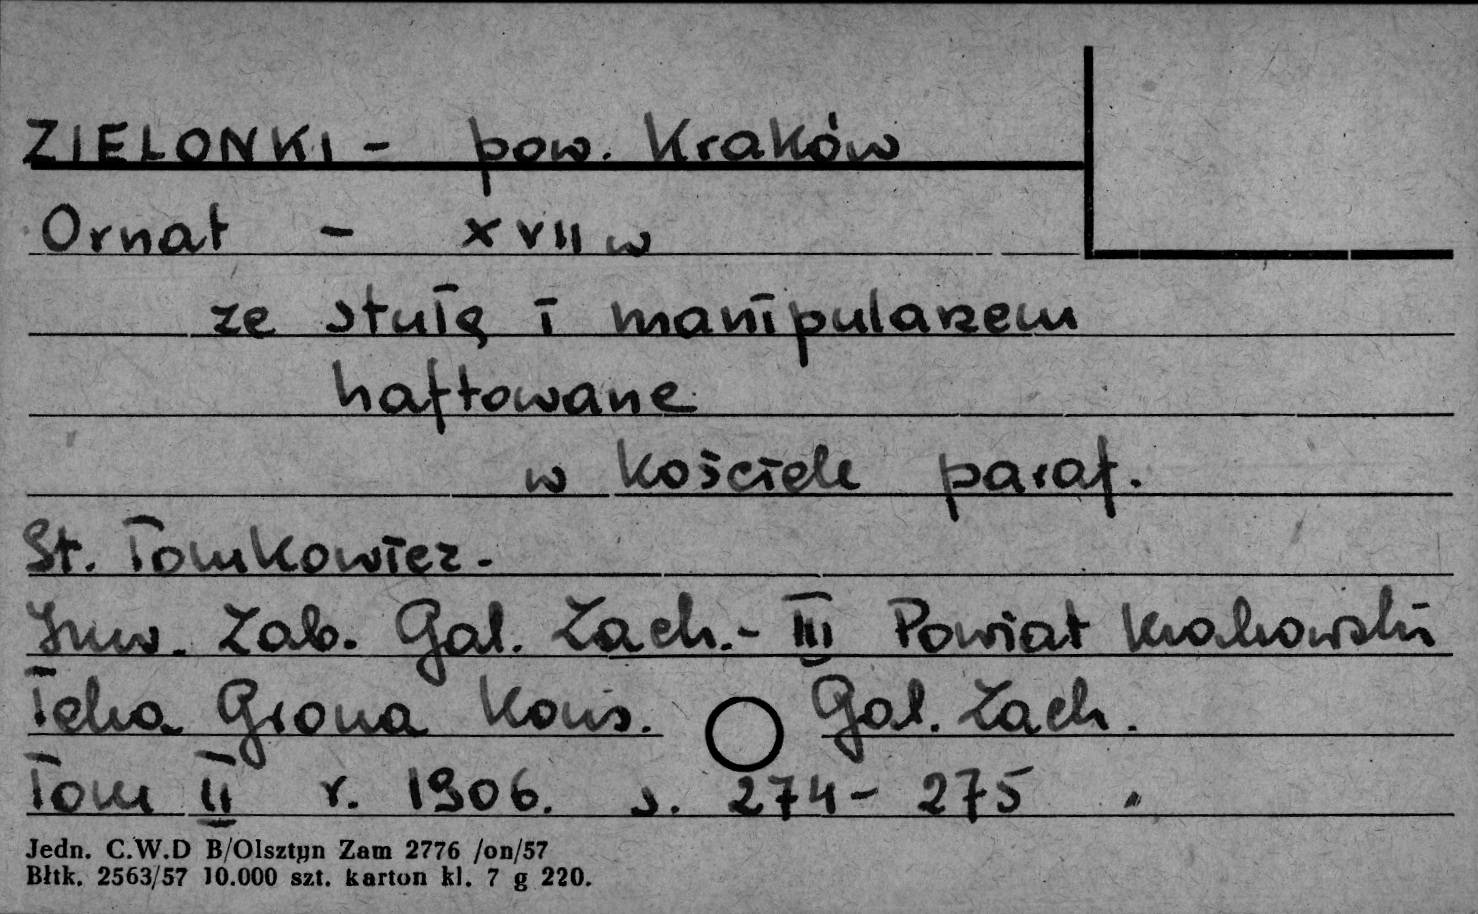 ZIELONKI - pow. Kraków
Ornat - XVII w
ze stułą i manipularzem
haftowane
w kościele paraf.
St. Tomkowicz -
Inw. Zab. Gal. Zach. - III Powiat Krakowski
Teka Grona Kons. Gal. Zach.
Tom II r. 1906. s. 274 - 275
Jedn. C.W.D B/Olsztyn Zam 2776 /on/57
Błtk. 2563/57 10.000 szt. karton kl. 7 g 220.